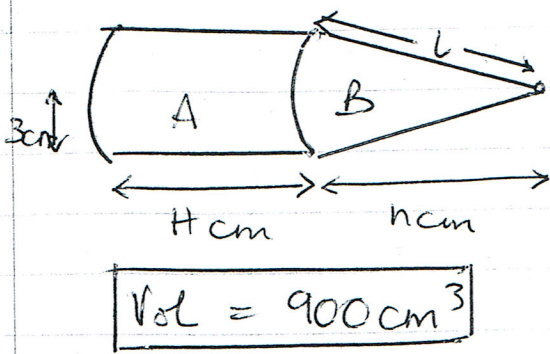 l
A
B
3cm
H cm
h cm
Vol = 900 cm³